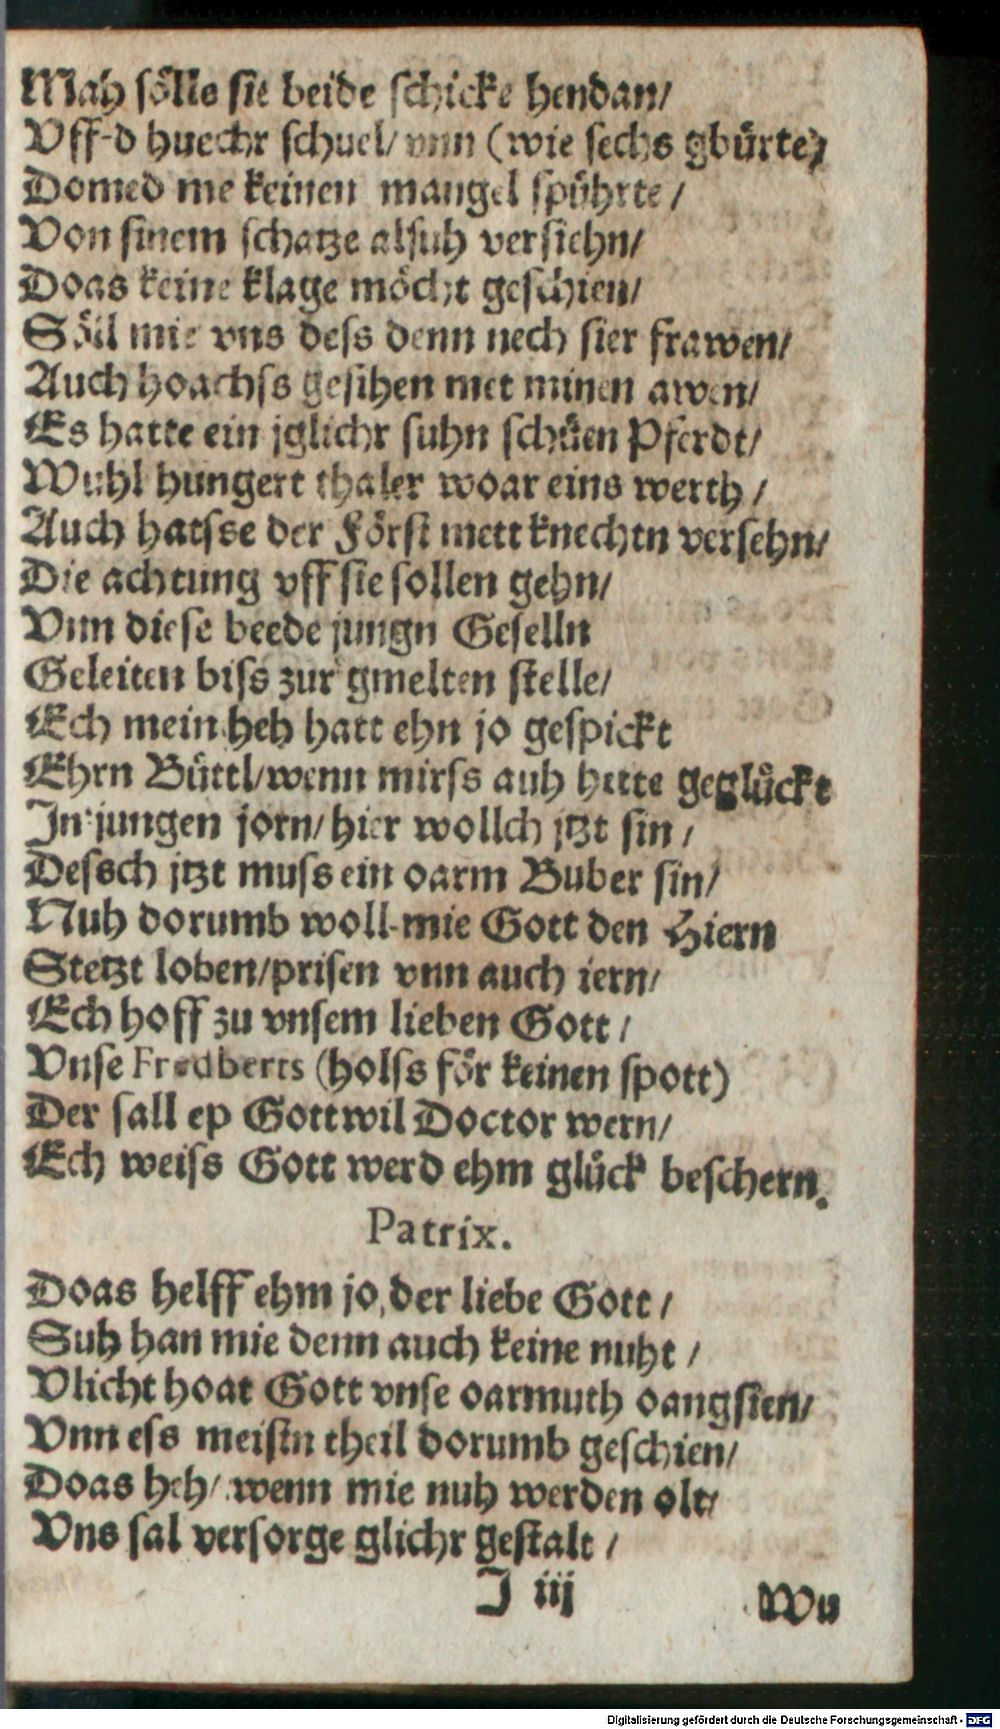 Mah sölle sie beide schicke hendan/
Vff-d huechr schuel/ vnn (wie sechs gbürte)
Domed me keinen mangel spührte/
Von sinem schatze alsuh versiehn/
Doas keine klage möcht geschien/
Söll mie vns dess denn nech sier frawen/
Auch hoachss gesihen met minen awen/
Es hatte ein jglichr suhn schüen Pferdt/
Wuhl hungert thaler woar eins werth/
Auch hatsse der Förſt mett knechtn versehn/
Die achtung vff sie sollen gehn/
Vnn diese beede jungn Geselln
Geleiten biss zur gmelten stelle/
Ech mein heh hatt ehn jo gespickt
Ehrn Büttl/wenn mirss auh hette geglückt
In jungen jorn/ hier wollch jtzt sin/
Dessch jtzt muss ein oarm Buber sin/
Nuh dorumb woll mie Gott den Hiern
Stetzt loben/prisen vnn auch iern/
Ech hoff zu vnsem lieben Gott/
Vnse Fredberts (holss för keinen spott)
Der sall ep Gott wil Doctor wern/
Ech weiss Gott werd ehm glück beschern.
Patrix.
Doas helff ehm jo, der liebe Gott/
Suh han mie denn auch keine nuht/
Vlicht hoat Gott vnse oarmuth oangsien/
Vnn ess meistn theil dorumb geschien/
Doas heh/ wenn mie nuh werden olt/
Vns sal versorge glichr gestalt/
J iij
Wu
Digitalisierung gefördert durch die Deutsche Forschungsgemeinschaft - DFG